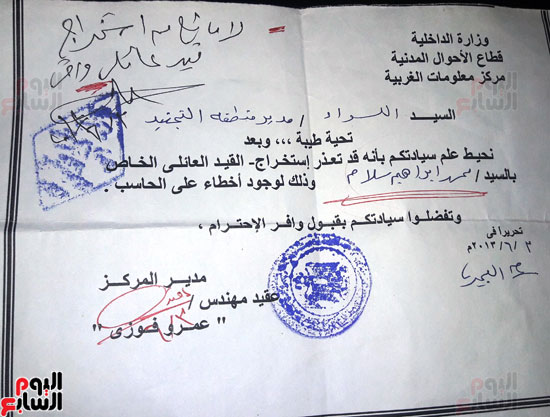 وزارة الداخلية
قطاع الأحوال المدنية
مركز معلومات الغربية
لا مانع من استخراج
قيد عائلى
السيد اللواء / مدير منطقة التجنيد
تحية طيبة ،،، وبعد
نحيط علم سيادتكم بأنه قد تعذر إستخراج- القيد العائلى الخاص
بالسيد / محمد ابراهيم سلام وذلك لوجود أخطاء على الحاسب .
وتفضلوا سيادتكم بقبول وافر الإحترام ،
تحريرا فى
٣ / ٦ / ٢٠١٣م
مدير المركز
عقيد مهندس /
" عمرو فوزى "
اليوم السابع
اليوم السابع